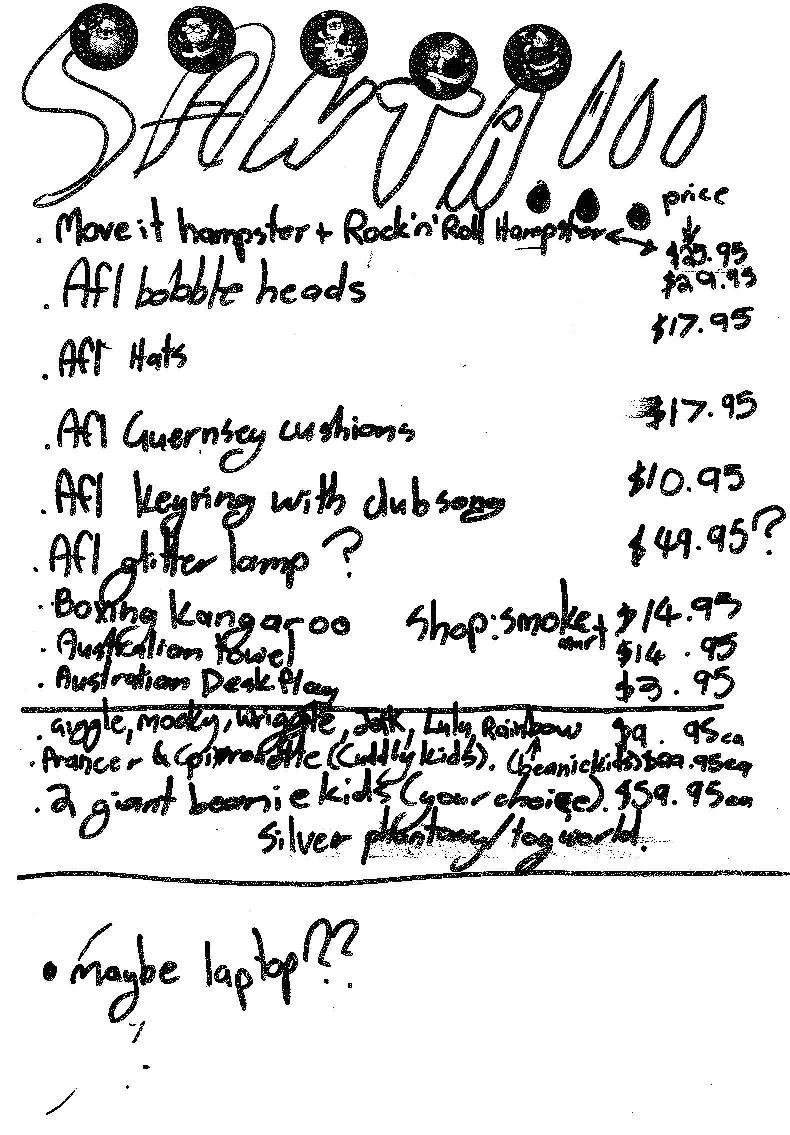 SANTA
price
. Move it hampster + Rock'n'Roll Hampster $25.95
$29.95
. Afl bobble heads $17.95
. Afl Hats $17.95
. Afl Guernsey cushions $10.95
. Afl keyring with clubsong
. Afl glitter lamp ? $49.95?
. Boxing kangaroo shop: smoke mart $14.95
. Australian Towel $14.95
. Australian Desk Flag $3.95
. giggle, mocky, wriggle, Jak, Lulu, Rainbow $9.95ea
. Prancer & (Cuddly kids). (beanie kids) .95ea
. 2 giant beanie kids (your choice). $59.95ea
Silver / toyworld.
• Maybe laptop??